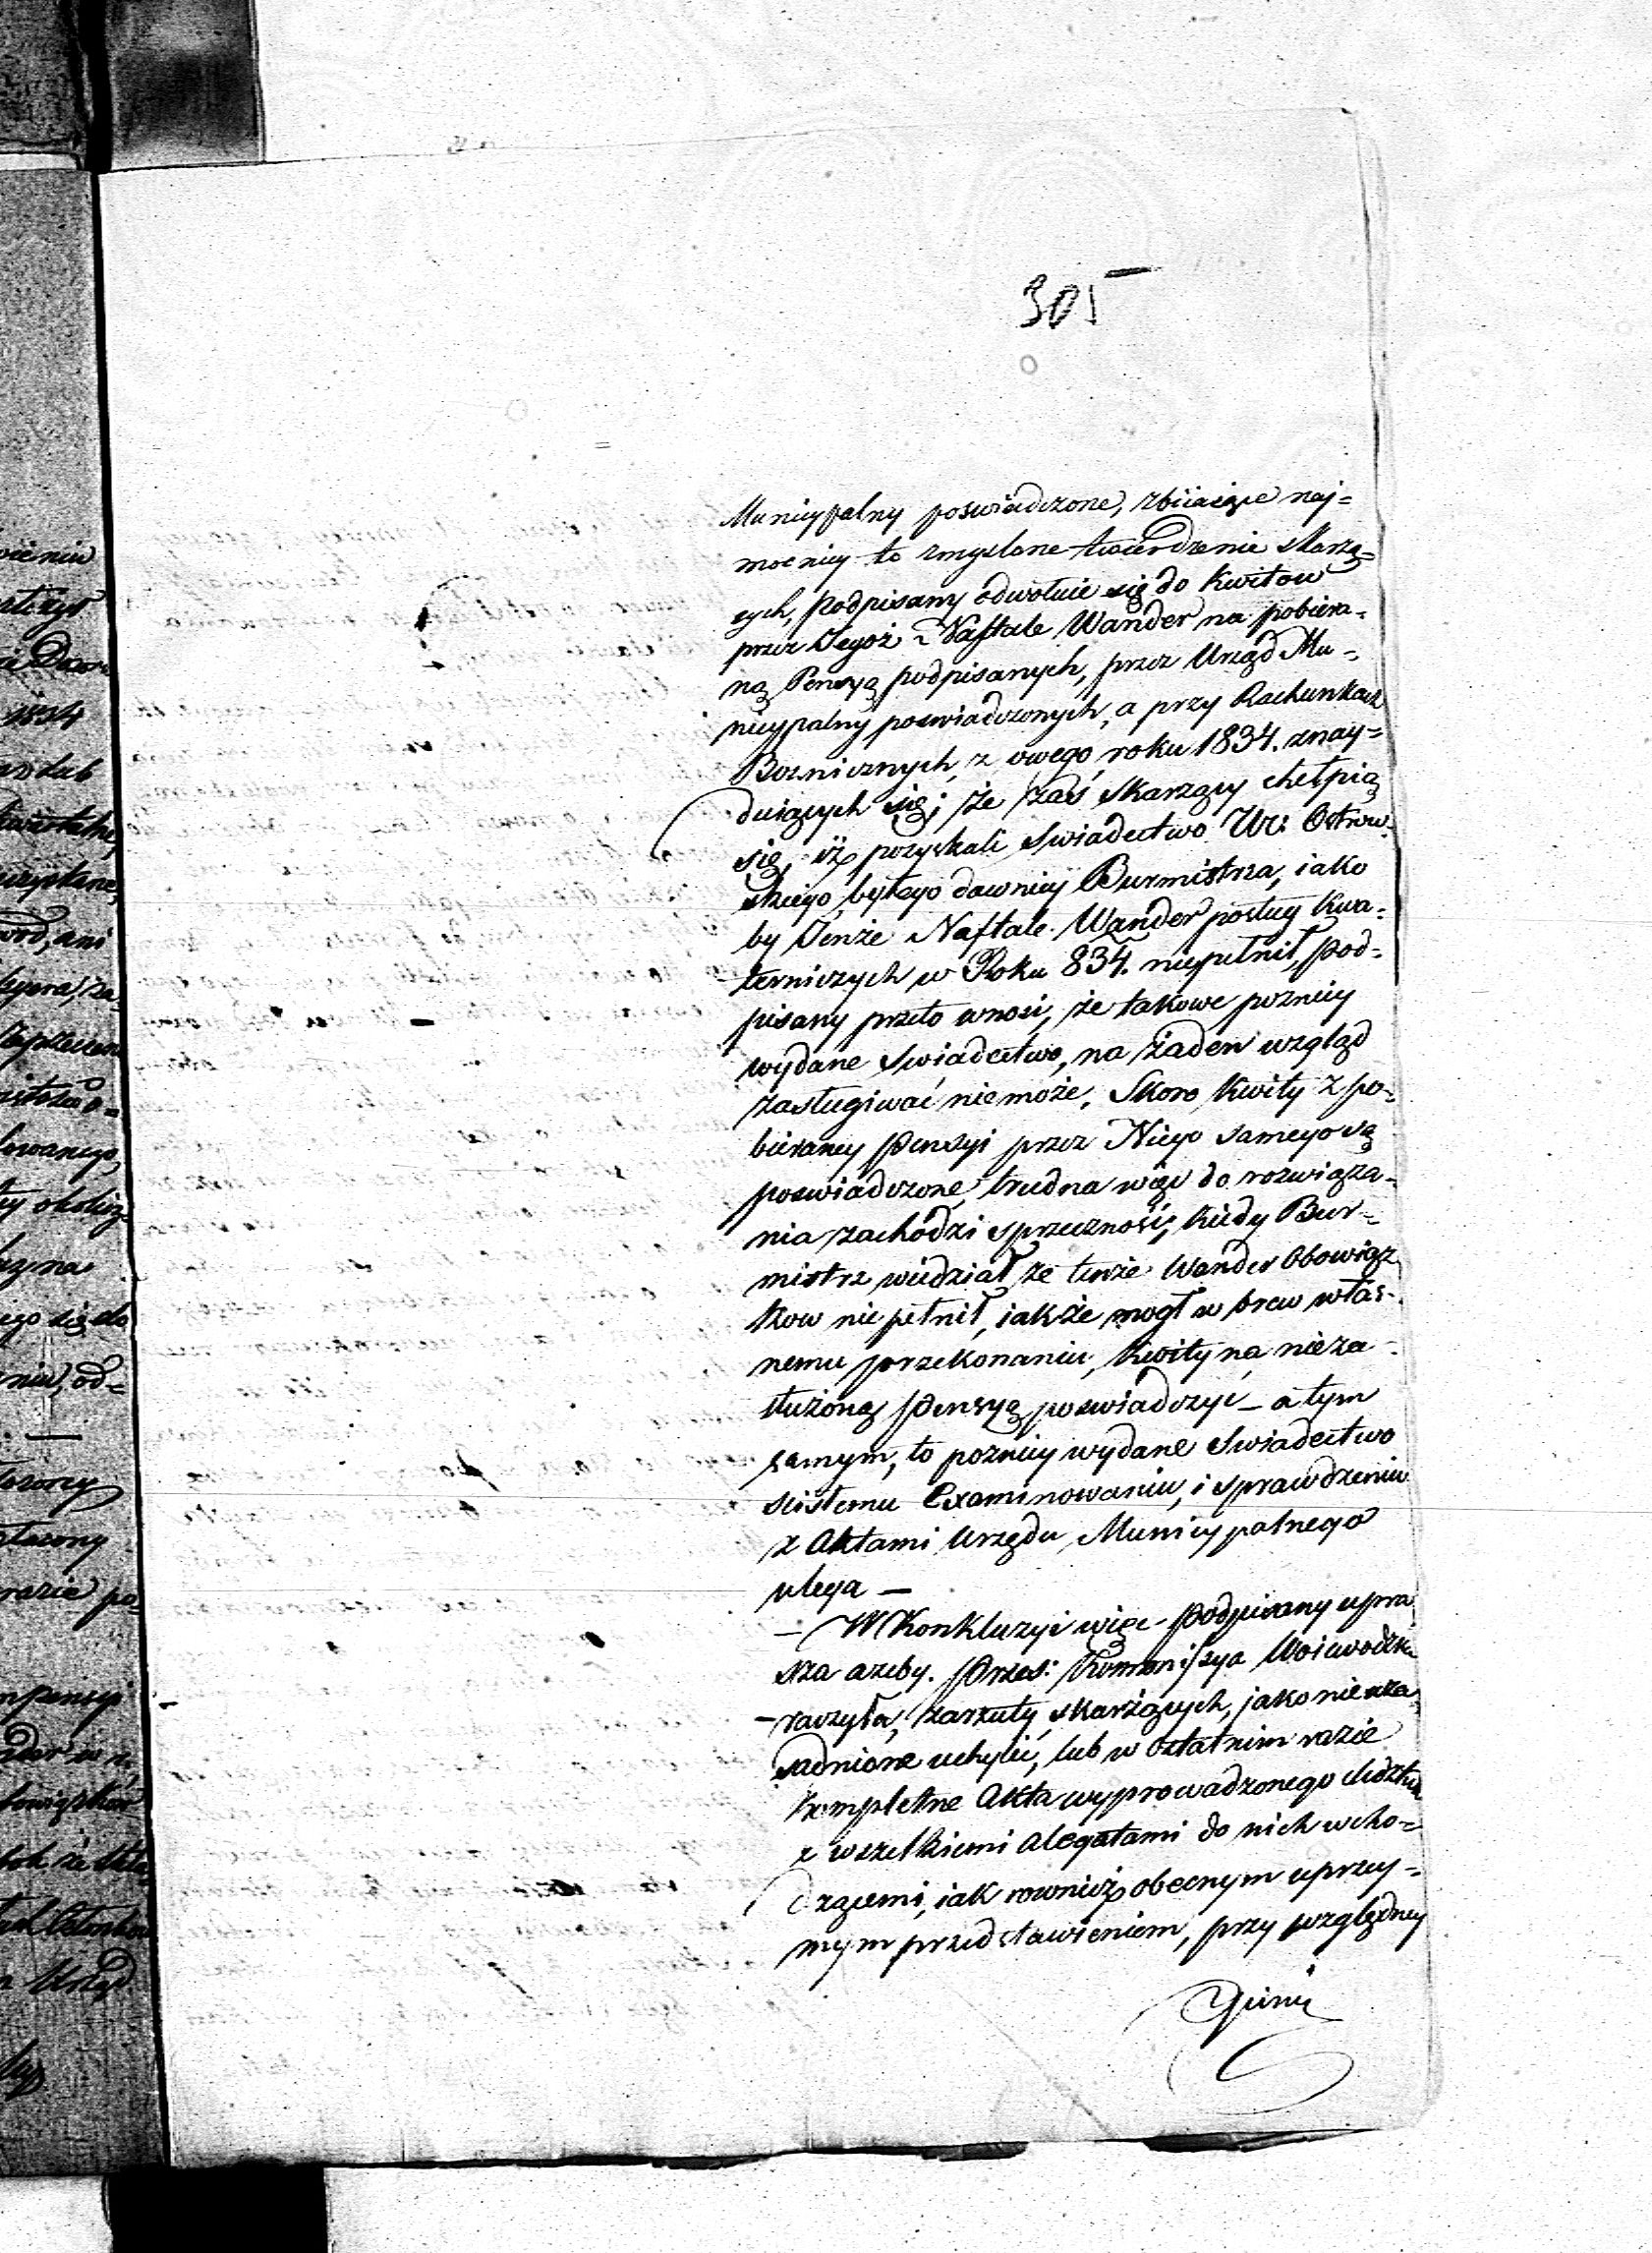 305
Municypalny poswiadczone, zbiiaiące naj=
mocniey to zmyslone twierdzenie skarzą=
cych, podpisany odwołuie się do Kwitow
przez Tegoż Naftale Wander na pobiera=
ną Pensyą podpisanych, przez Urząd Mu=
nicypalny poswiadczonych, a przy Rachunkach
Boznicznych z owego roku 1834. znay=
duiących się; że zaś skarzący chełpią
się, iż pozyskali Swiadectwo Ur: Ostrow=
skiego byłego dawniey Burmistrza, iako
by Tenże Naftale Wander posług Kwa=
terniczych w Roku 834. niepełnił, pod=
pisany przeto wnosi, że takowe pozniey
wydane Swiadectwo, na żaden wzgląd
zasługiwać niemoże, Skoro Kwity z po=
bieraney pensyi przez Niego samego są
poswiadczone, trudna więc do rozwiąza=
nia zachodzi sprzeczność, kiedy Bur=
mistrz wiedział że tenże Wander Obowiąz
kow nie pełnił, iakże mogł w brew włas=
nemu przekonaniu, Kwity na nieza=
służoną pensyą poswiadczyć – a tym
samym, to pozniey wydane Swiadectwo
scisłemu Examinowaniu, i sprawdzeniu
z Aktami Urzędu Municypalnego
ulega –
– W Konkluzyi więc podpisany upra
sza azeby Przes: Kommissya Woiewodzk
raczyła, zarzuty skarżących, jako nieuza
sadnione uchylić, lub w ostatnim razie
kompletne Akta wyprowadzonego Sledztwa
z wszelkiemi alegatami do nich wcho=
dzącemi, iak rownież obecnym uprzey=
mym przedstawieniem, przy względney